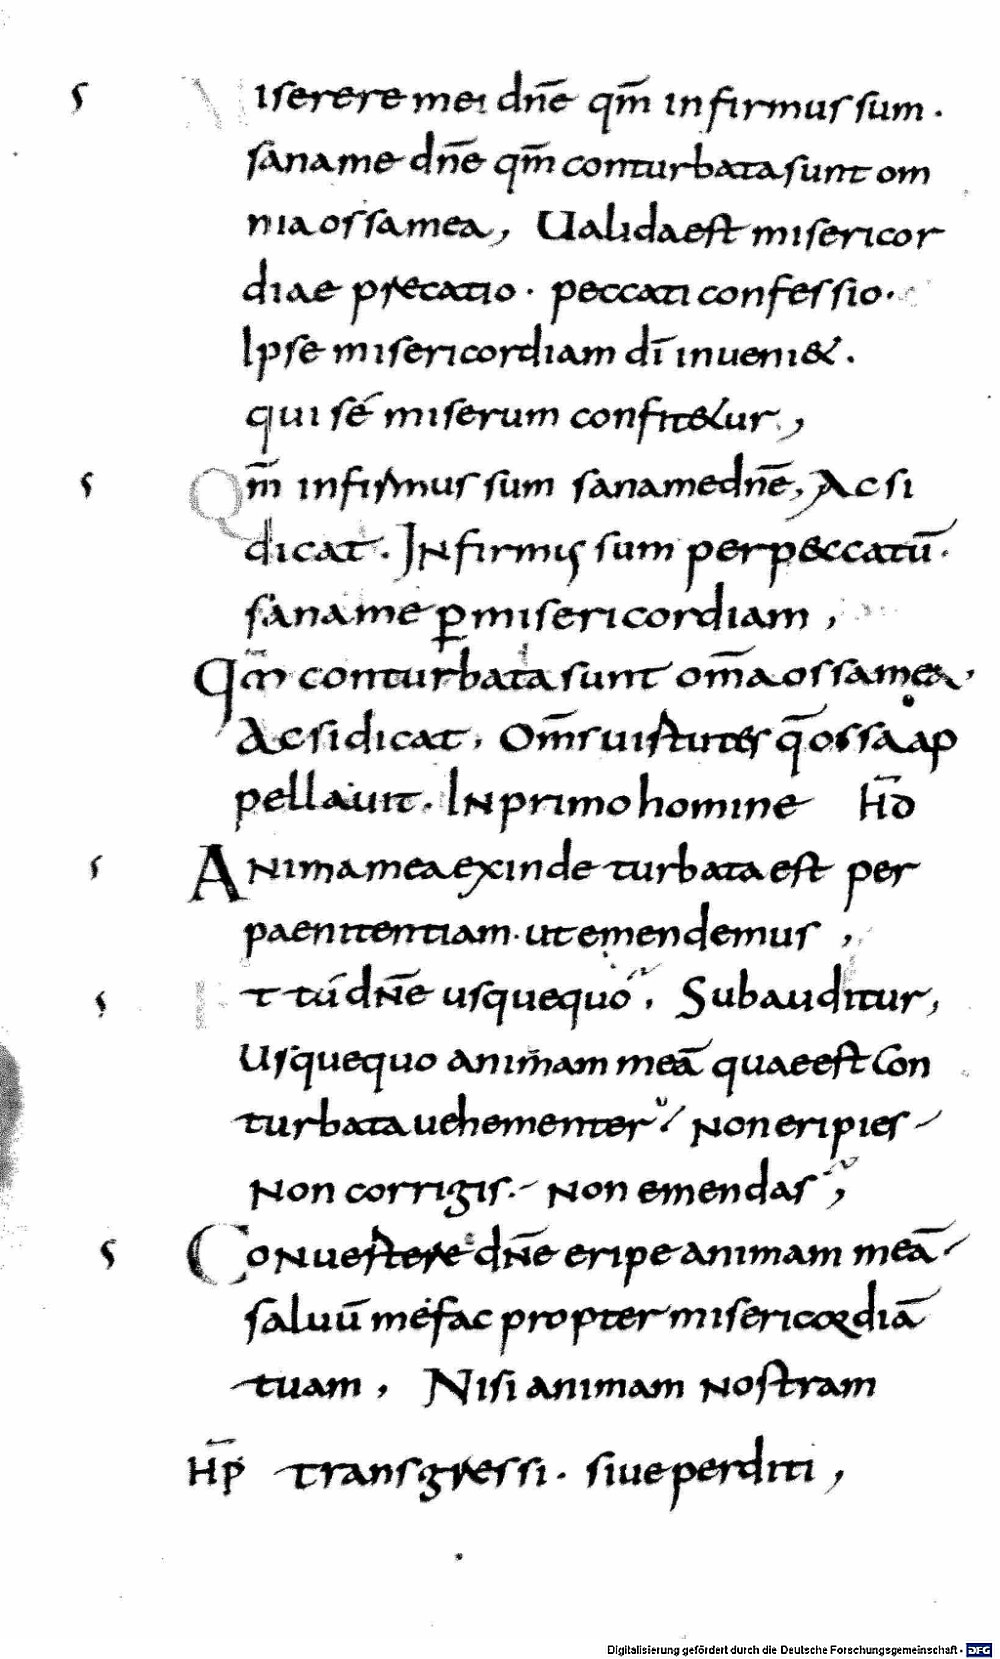 s Miserere mei dn̄e qm̄ infirmus sum.
sana me dn̄e qm̄ conturbata sunt om
nia ossa mea, Ualida est misericor
diae precatio. peccati confessio.
Ipse misericordiam dī inueni&.
qui se miserum confit&ur,
s Qm̄ infirmus sum sana me dn̄e, Acsi
dicat. Infirmus sum per peccatū.
sana me ꝑ misericordiam,
Qm̄ conturbata sunt om̄a ossa mea.
Acsi dicat. Om̄s uirtutes q̄ ossa ap
pellauit. In primo homine H̄D
s Anima mea exinde turbata est per
paenitentiam. ut emendemus,
s Et tu dn̄e usquequo. Subauditur,
Usquequo animam meā quae est con
turbata uehementer. Non eripies
Non corrigis. Non emendas,
s Conuertere dn̄e eripe animam meā
saluū me fac propter misericordiā
tuam, Nisi animam nostram
H̄P transgressi. siue perditi,
Digitalisierung gefördert durch die Deutsche Forschungsgemeinschaft - DFG